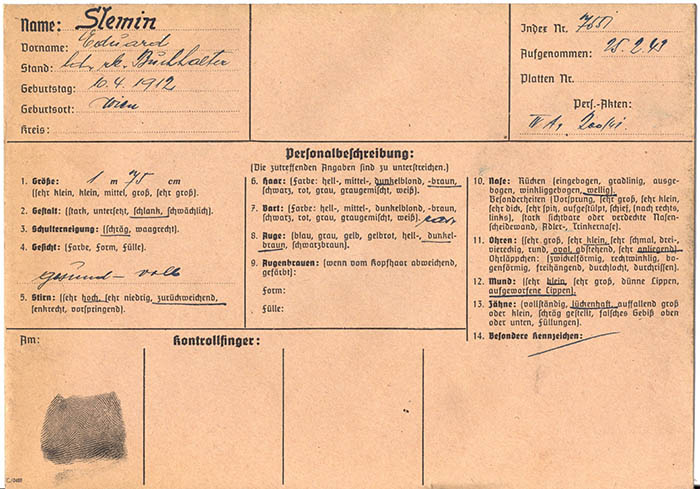 Name: Slemin
Vorname: Eduard
Stand: led. rk. Buchhalter
Geburtstag: 10.4.1912
Geburtsort: Wien
Kreis:
Index Nr. 7651
Aufgenommen: 25.2.43
Platten Nr.
Pers.-Akten:
IV A,
Personalbeschreibung:
(Die zutreffenden Angaben sind zu unterstreichen.)
1. Größe: 1 m 75 cm
(sehr klein, klein, mittel, groß, sehr groß).
2. Gestalt: (stark, untersetzt, schlank, schwächlich).
3. Schulterneigung: (schräg, waagrecht).
4. Gesicht: (Farbe, Form, Fülle).
gesund - voll
5. Stirn: (sehr hoch, sehr niedrig, zurückweichend,
senkrecht, vorspringend).
6. Haar: (Farbe: hell-, mittel-, dunkelblond, -braun,
schwarz, rot, grau, graugemischt, weiß).
7. Bart: (Farbe: hell-, mittel-, dunkelblond, -braun,
schwarz, rot, grau, graugemischt, weiß).
8. Auge: (blau, grau, gelb, gelbrot, hell-, dunkel-
braun, schwarzbraun).
9. Augenbrauen: (wenn vom Kopfhaar abweichend,
gefärbt):
Form:
Fülle:
10. Nase: Rücken (eingebogen, gradlinig, ausge-
bogen, winkliggebogen, wellig).
Besonderheiten (Vorsprung, sehr groß, sehr klein,
sehr dick, sehr spitz, aufgestülpt, schief, (nach rechts,
links), stark sichtbare oder verdeckte Nasen-
scheidewand, Adler-, Trinkernase).
11. Ohren: (sehr groß, sehr klein, sehr schmal, drei-,
viereckig, rund, oval, abstehend, sehr anliegend).
Ohrläppchen: (zwickelförmig, rechtwinklig, bo-
genförmig, freihängend, durchlocht, durchrissen).
12. Mund: (sehr klein, sehr groß, dünne Lippen,
aufgeworfene Lippen).
13. Zähne: (vollständig, lückenhaft, auffallend groß
oder klein, schräg gestellt, falsches Gebiß oben
oder unten, Füllungen).
14. Besondere Kennzeichen:
Am:
Kontrollfinger: